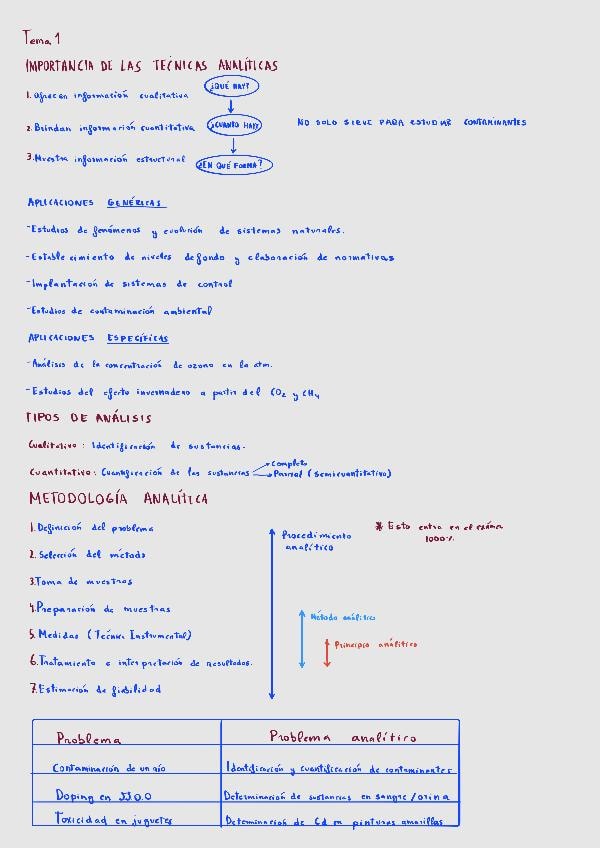 Tema 1
IMPORTANCIA DE LAS TECNICAS ANALÍTICAS
1. Ofrecen información cualitativa
¿QUÉ HAY?
2. Brindan información cuantitativa
¿CUANTO HAY?
NO SOLO SIRVE PARA ESTUDIAR CONTAMINANTES
3. Muestra información estructural
¿EN QUÉ FORMA?
APLICACIONES GENÉRICAS
-Estudios de fenómenos y evolución de sistemas naturales.
-Establecimiento de niveles de fondo y elaboración de normativas
-Implantación de sistemas de control
-Estudios de contaminación ambiental
APLICACIONES ESPECÍFICAS
-Análisis de la concentración de ozono en la atm.
-Estudios del efecto invernadero a partir del CO2 y CH4
TIPOS DE ANÁLISIS
Cualitativo: Identificación de sustancias.
Cuantitativo: Cuantificación de las sustancias
Completo
Parcial (semicuantitativo)
METODOLOGÍA ANALÍTICA
1. Definición del problema
Procedimiento
analítico
* Esto entra en el exámen
1000%
2. Selección del método
3. Toma de muestras
4. Preparación de muestras
Método analítico
5. Medidas (Técnica Instrumental)
Principio analítico
6. Tratamiento e interpretación de resultados.
7. Estimación de fiabilidad
Problema
Problema analítico
Contaminación de un río
Identificación y cuantificación de contaminantes
Doping en JJ.O.O
Determinación de sustancias en sangre/orina
Toxicidad en juguetes
Determinación de Cd en pinturas amarillas